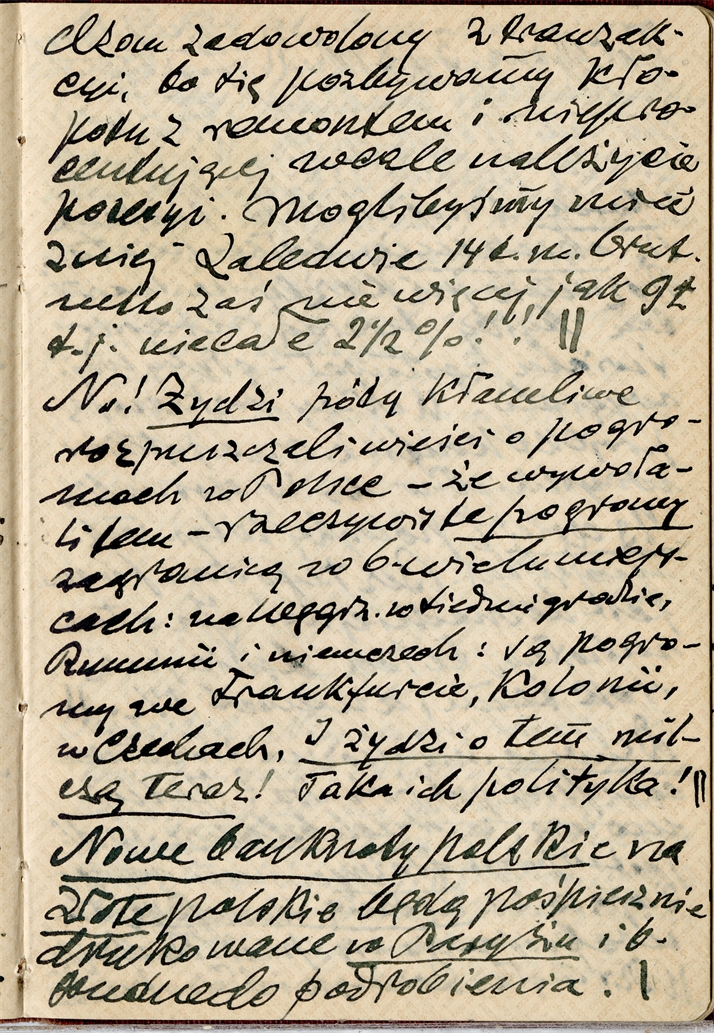 Jestem zadowolony z tranzak-
cyi, bo się pozbywamy kło-
potu z remontem i niepro-
centującej wcale należycie
posesyi. Moglibyśmy mieć
z niej zaledwie 14 t. m. brut.
netto zaś nie więcej jak 9 t
t.j. niecałe 2 1/2 %!!
No! Żydzi póty kłamliwe
rozpuszczali wieści o pogro-
mach w Polsce – że wywoła-
li tem – rzeczywiste pogromy
zagranicą w b. wielu miejs-
cach: na Węgrz. w Siedmigrodzie,
Rumunii i niemczech: są pogro-
my we Frankfurcie, Kolonii,
w Czechach. I żydzi o tem mil-
czą teraz! Taka ich polityka!
Nowe banknoty polskie na
złote polskie będą pośpiesznie
drukowane w Paryżu i b.
trudne do podrobienia.